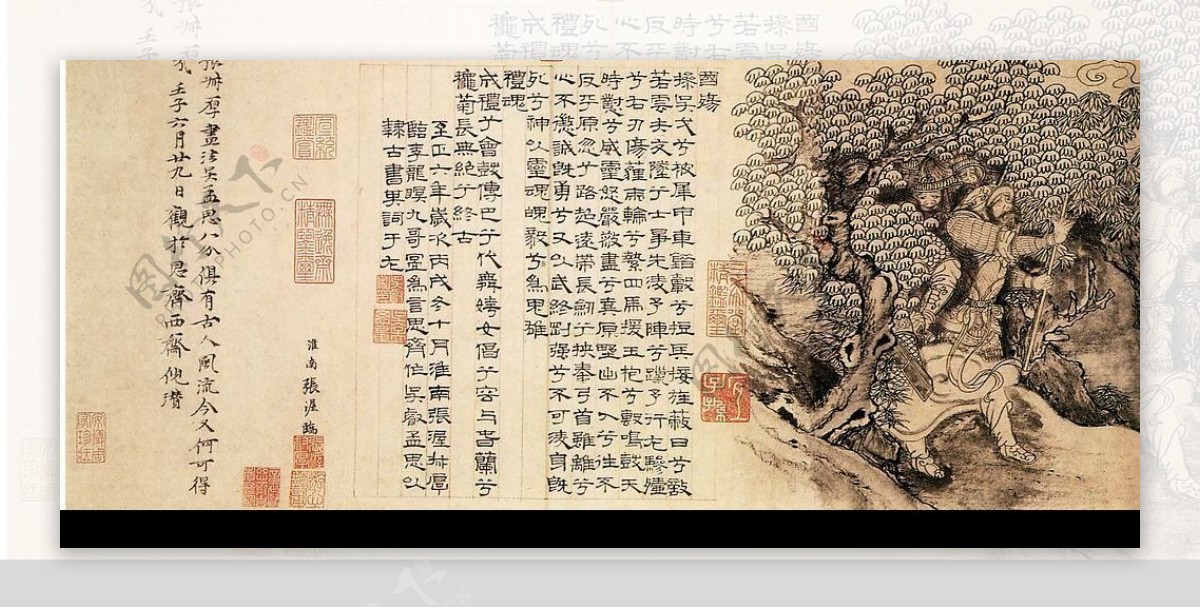 國殤
操吳戈兮被犀甲車錯轂兮短兵接旌蔽日兮敵
若雲矢交墜兮士爭先凌予陣兮躐予行左驂殪
兮右刃傷霾兩輪兮縶四馬援玉枹兮擊鳴鼓天
時懟兮威靈怒嚴殺盡兮棄原壄出不入兮往不
反平原忽兮路超遠帶長劍兮挾秦弓首雖離兮
心不懲誠既勇兮又以武終剛強兮不可凌身既
死兮神以靈魂魄毅兮為鬼雄
禮魂
成禮兮會鼓傳巴兮代舞姱女倡兮容與春蘭兮
龝菊長無絕兮終古
至正六年歲次丙戌冬十月淮南張渥叔厚
臨李龍眠九哥圖為言思齊作吳睿孟思以
隸古書其詞于左
淮南張渥臨
張叔厚畫法吳孟思八分俱有古人風流今又何可得
哉壬子六月廿九日觀於思齊西齋倪瓚